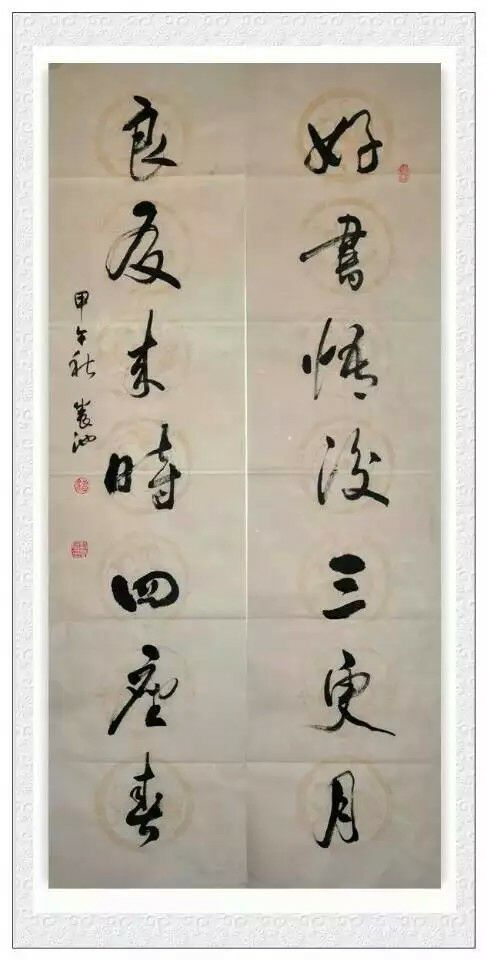 好書悟後三更月
良友來時四座春
甲午秋